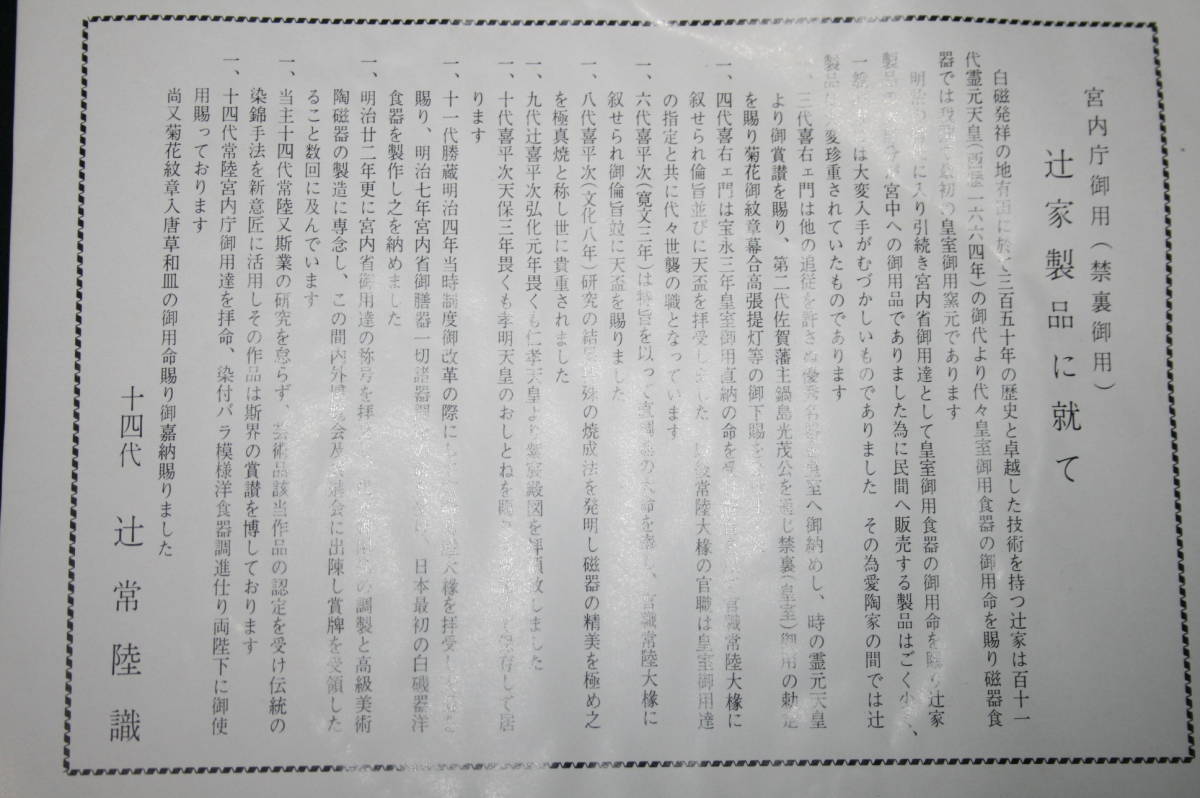 宮内庁御用（禁裏御用）
辻家製品に就て
白磁発祥の地有田に於て三百五十年の歴史と卓越した技術を持つ辻家は百十一
代霊元天皇（西暦一六六四年）の御代より代々皇室御用食器の御用命を賜り磁器食
器では 最初の皇室御用窯元であります
明治 に入り引続き宮内省御用達として皇室御用食器の御用命を賜り辻家
製品 が宮中への御用品でありました為に民間へ販売する製品はごく小 、
一般 は大変入手がむづかしいものでありました その為愛陶家の間では辻
製品 変珍重されていたものであります
、三代喜右ェ門は他の追従を許さぬ優秀名器 皇室へ御納めし、時の霊元天皇
より御賞讃を賜り、第二代佐賀藩主鍋島光茂公を通じ禁裏（皇室）御用の勅定
を賜り菊花御紋章幕合高張提灯等の御下賜を
一、四代喜右ェ門は宝永三年皇室御用直納の命を 官職常陸大椽に
叙せられ倫旨並びに天盃を拝受 した 常陸大椽の官職は皇室御用達
の指定と共に代々世襲の職となっています
一、六代喜平次（寛文三年）は特旨を以って直 の大命を し、官職常陸大椽に
叙せられ御倫旨竝に天盃を賜りました
一、八代喜平次（文化八年）研究の結果特殊の焼成法を発明し磁器の精美を極め之
を極真焼と称し世に貴重されました
一、九代辻喜平次弘化元年畏くも仁孝天皇より紫宸殿図を拝領致しました
一、十代喜平次天保三年畏くも孝明天皇のおしとねを賜 保存して居
ります
一、十一代勝蔵明治四年当時制度御改革の際にし 大椽を拝受し
賜り、明治七年宮内省御膳器一切諸器 、日本最初の白磁器洋
食器を製作し之を納めました
一、明治廿二年更に宮内省御用達の称号を拝 の調製と高級美術
陶磁器の製造に専念し、この間内外博覧会及 会に出陳し賞牌を受領した
ること数回に及んでいます
一、当主十四代常陸又斯業の研究を怠らず、芸術品該当作品の認定を受け伝統の
染錦手法を新意匠に活用しその作品は斯界の賞讃を博しております
一、十四代常陸宮内庁御用達を拝命、染付バラ模様洋食器調進仕り両陛下に御使
用賜っております
尚又菊花紋章入唐草和皿の御用命賜り御嘉納賜りました
十四代 辻常陸識